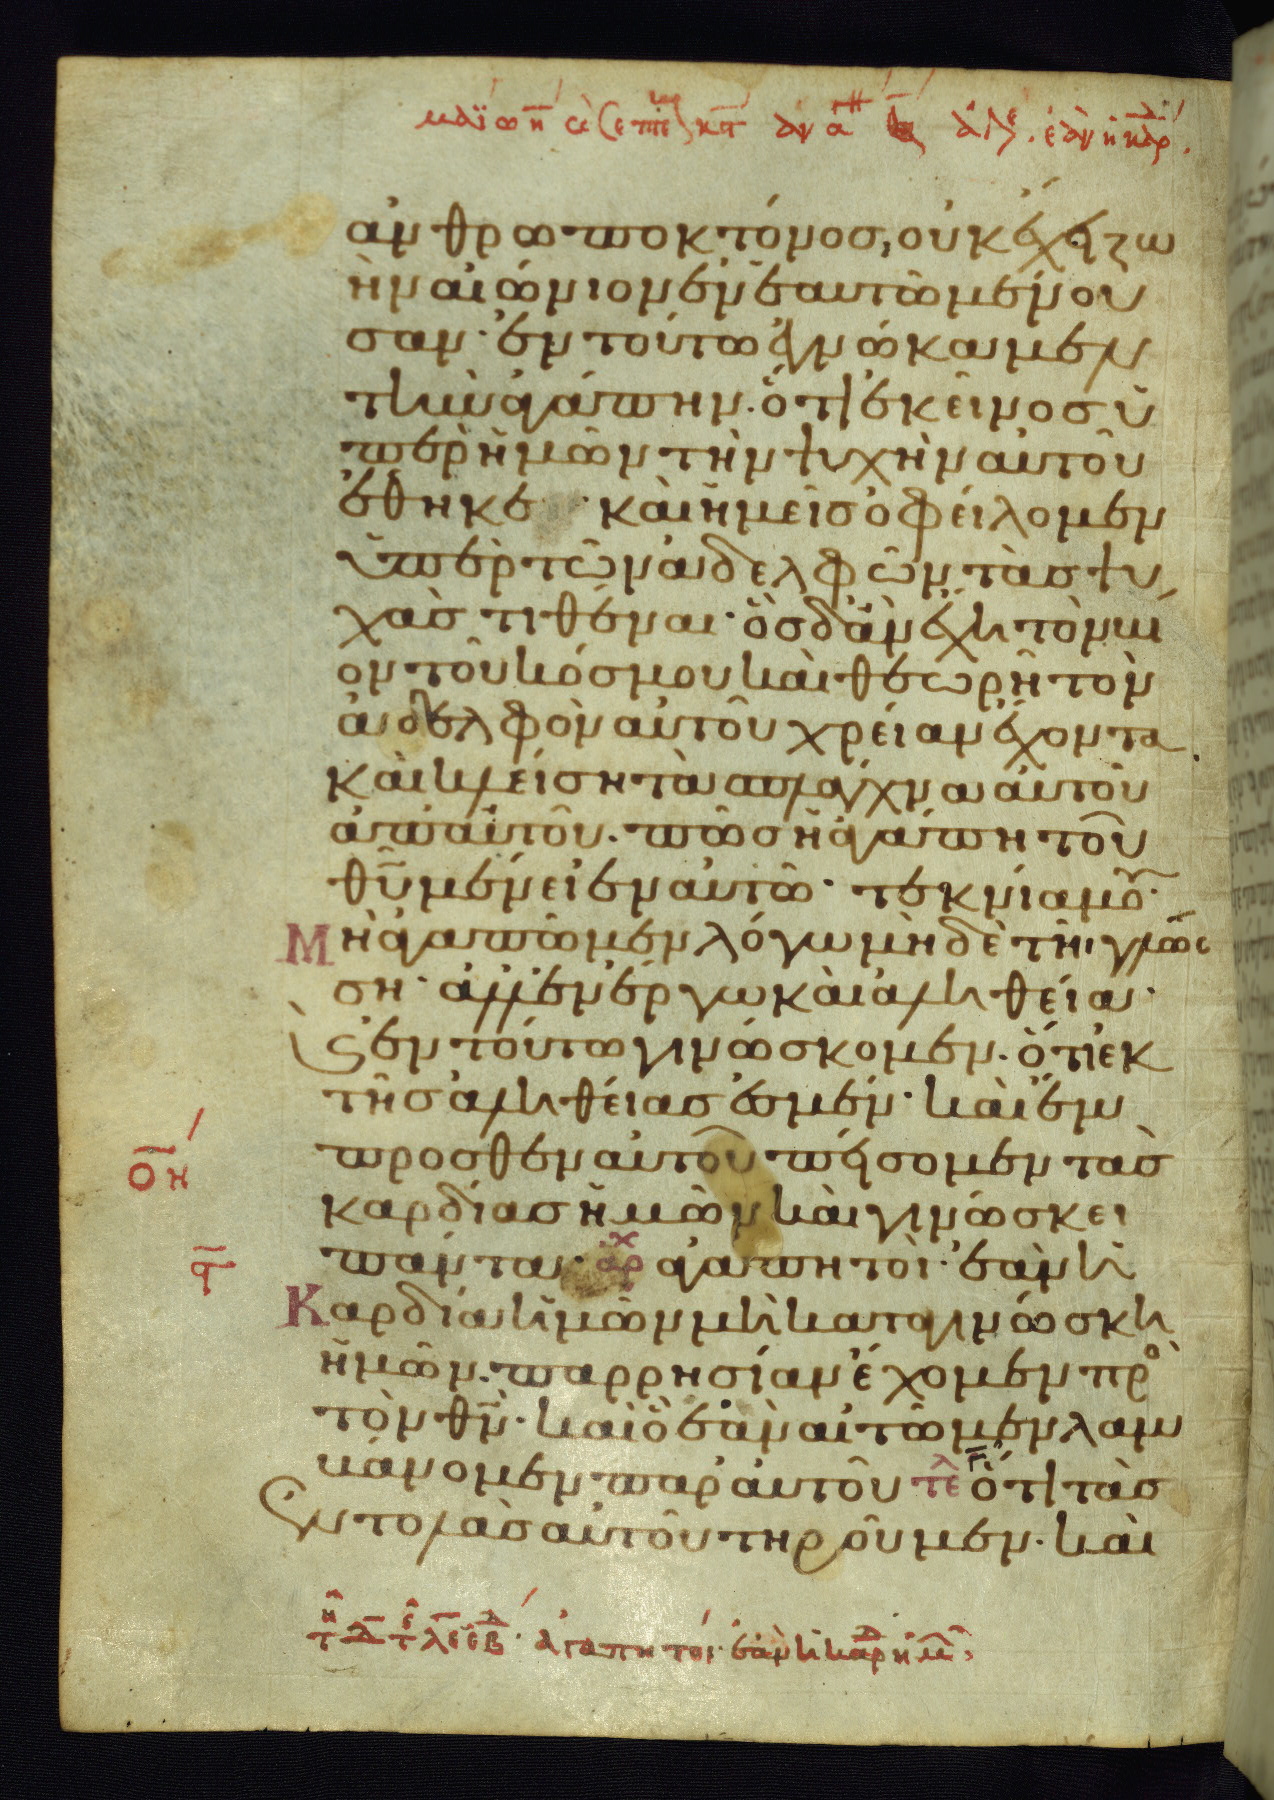 ἀνθρωποκτόνοσ, οὐκ ἔχει ζω
ὴν αἰώνιον ἐν ἑαυτῶ μένου
σαν· ἐν τούτω ἐγνώκαμεν
τὴν ἀγάπην. ὅτι ἐκεῖνοσ ὑ
πὲρ ἡμῶν τὴν ψυχὴν αὐτοῦ
ἔθηκε· καὶ ἡμεῖσ ὀφείλομεν
ὑπὲρ τῶν ἀδελφῶν τὰσ ψυ
χὰσ τιθέναι· ὃσ δ' ἂν ἔχη τὸν βί
ον τοῦ κόσμου καὶ θεωρῆ τὸν
ἀδελφὸν αὐτοῦ χρείαν ἔχοντα
καὶ κλείση τὰ σπλάγχνα αὐτοῦ
ἀπ' αὐτοῦ. πῶσ ἡ ἀγάπη τοῦ
θῦ μένει ἐν αὐτῶ· τεκνία μου·
Μὴ ἀγαπῶμεν λόγω μηδὲ τῆ γλώσ
ση· ἀλλ' ἐν ἔργω καὶ ἀληθεία·
ἐν τούτω γινώσκομεν. ὅτι ἐκ
τῆσ ἀληθείασ ἐσμέν· καὶ ἔμ
προσθεν αὐτοῦ πείσομεν τὰσ
καρδίασ ἡμῶν καὶ γινώσκει
ον
πάντα· ἀρχ ἀγαπητοὶ· ἐὰν ἡ
Καρδία ἡμῶν μὴ καταγινώσκη
ἡμῶν. παρρησίαν ἔχομεν πρὸ
τὸν θν̄· καὶ ὃ ἐὰν αἰτῶμεν λαμ
βάνομεν παρ' αὐτοῦ τε̄λ ὅτι τὰσ
ἐντολὰσ αὐτοῦ τηροῦμεν. καὶ
ἀγαπητοί· ἐὰν ἡ καρδ ἡμ